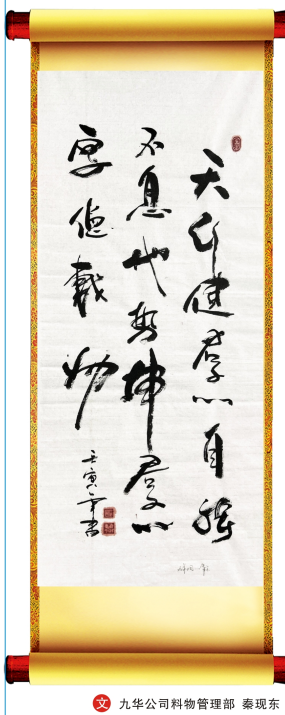 天行健君子以自強
不息地势坤君子以
厚德載物
壬寅年書
文 九华公司料物管理部 秦现东